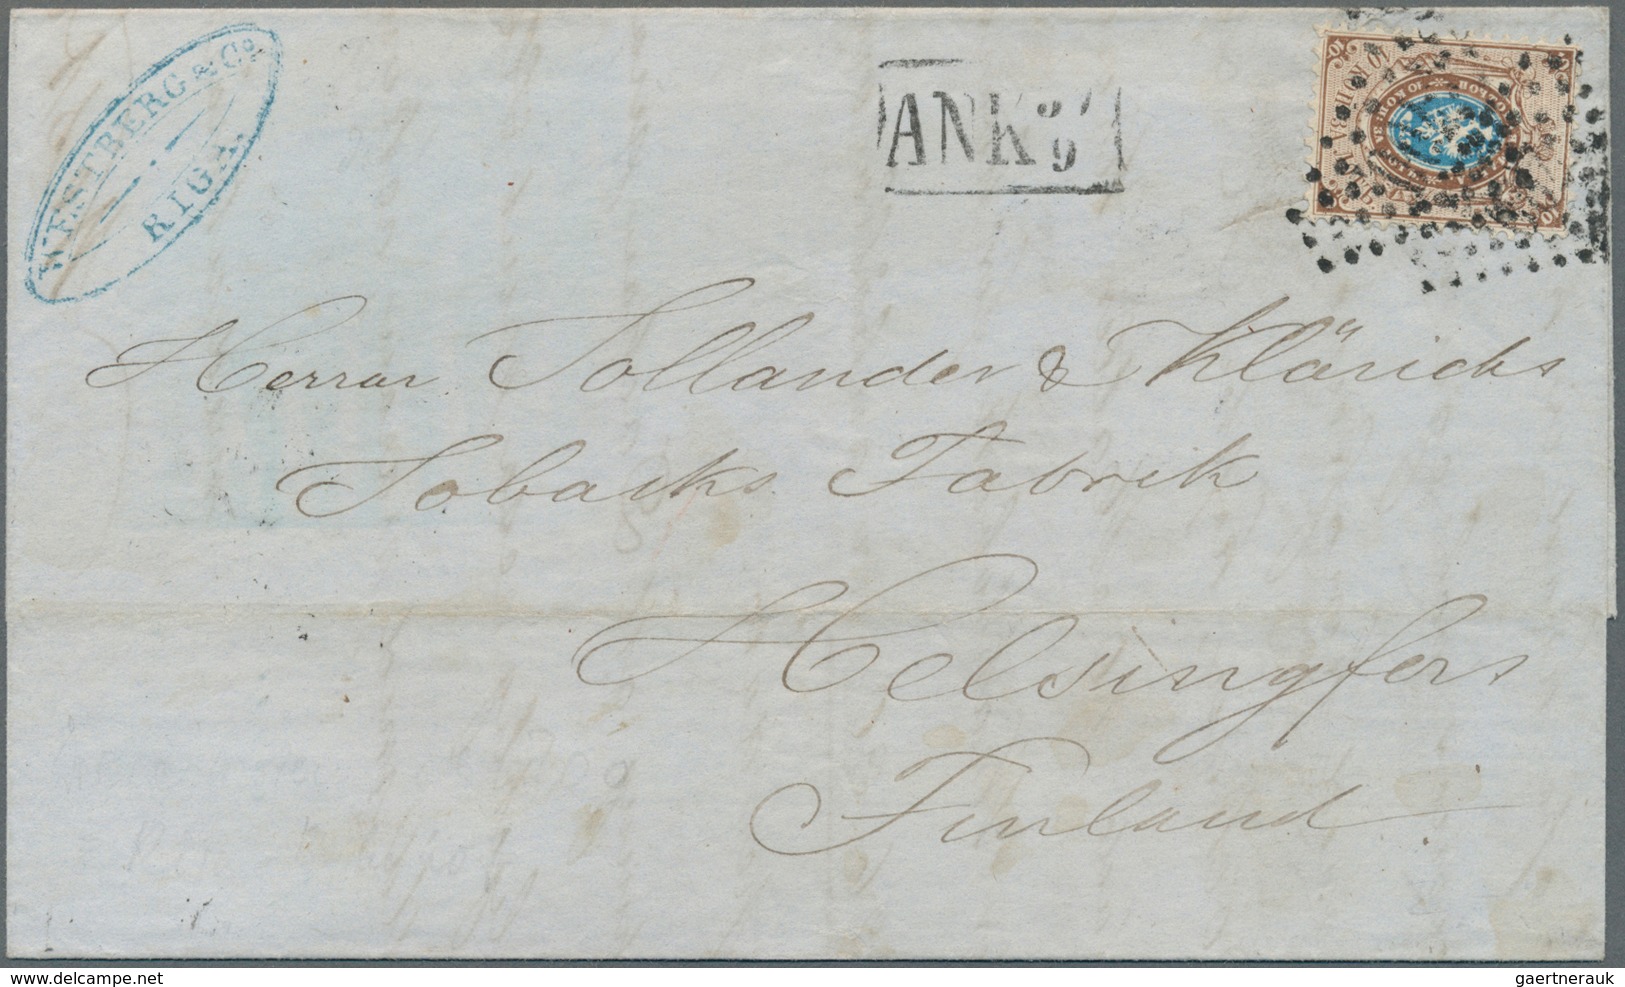 WESTBERG & Co.
RIGA.
ANK
9
Herrar Tollander & Klärichs
Tobacks Fabrik
Helsingfors
Finland
www.delcampe.net
gaertnerauk